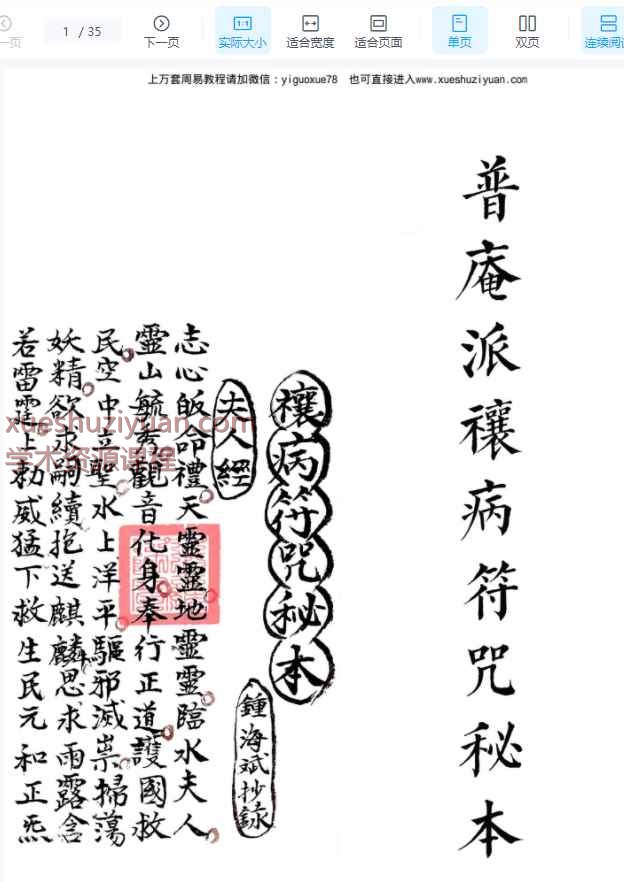 一页
1 / 35
下一页
实际大小
适合宽度
适合页面
单页
双页
连续阅
上万套周易教程请加微信：yiguoxue78 也可直接进入www.xueshuziyuan.com
普庵派禳病符咒秘本
禳病符咒秘本
鍾海斌抄録
夫人經
志心皈命禮天靈靈地靈靈臨水夫人
靈山毓秀觀音化身奉行正道護國救
民空中立聖水上洋平驅邪滅祟掃蕩
妖精欲求嗣續抱送麒麟思求雨露含
若雷霆上勅威猛下救生民元和正炁
xueshuziyuan.com
学术资源课程